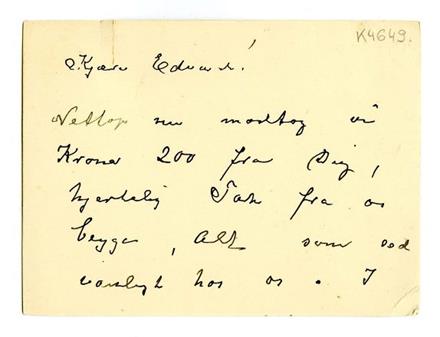 K4649.
Kjære Edvard!
Nettop nu modtog vi
Kroner 200 fra Dig,
hjertelig Tak fra os
begge, Alt som ved
vanligt hos os. I